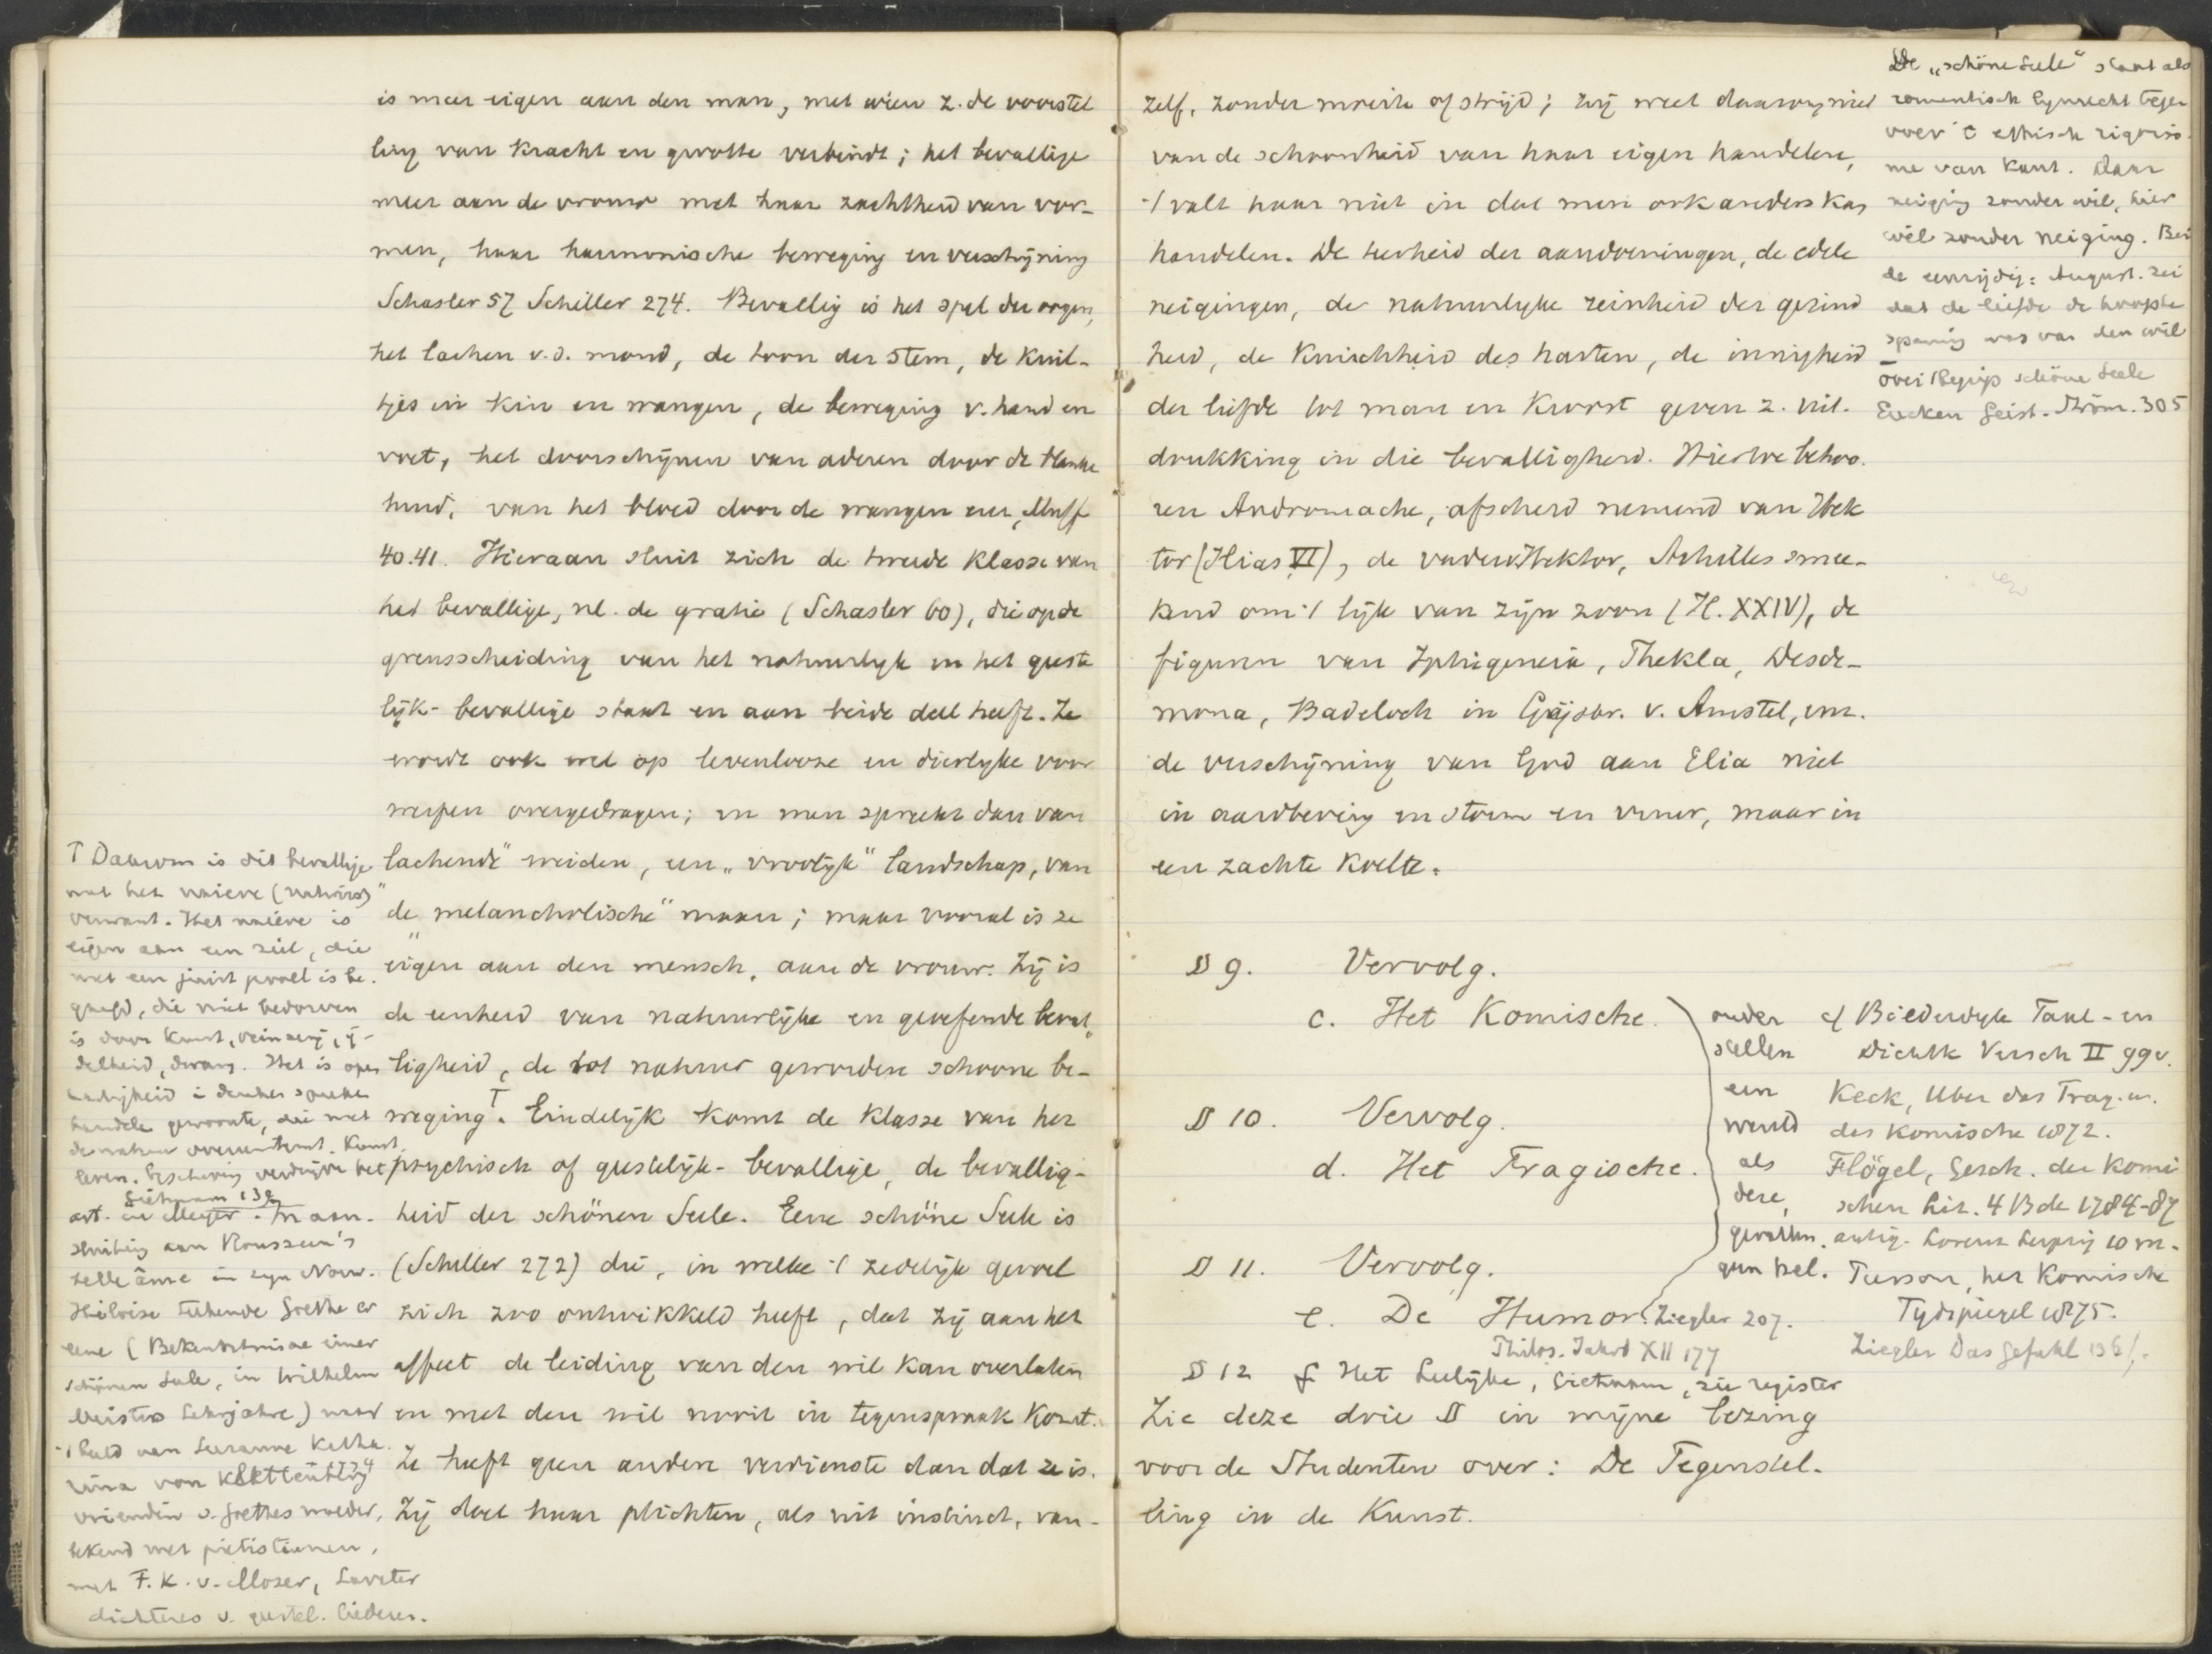 is meer eigen aan den man, met wien z. de voorstel
ling van kracht en grootte verbindt; het bevallige
meer aan de vrouw met haar zachtheid van vor-
men, haar harmonische beweging en verschijning
Schasler 57 Schiller 274. Bevallig is het spel der oogen,
het lachen v.d. mond, de toon der stem, de kuil-
tjes in kin en wangen, de beweging v. hand en
voet, het doorschijnen van aderen door de blanke
huid, van het bloed door de wangen enz,
40.41. Hieraan sluit zich de tweede klasse van
het bevallige, nl. de gratie (Schasler 60), die op de
grensscheiding van het natuurlijk en het geeste
lijk-bevallige staat en aan beide deel heeft. Ze
wordt ook wel op levenlooze en dierlijke voor
werpen overgedragen; en men spreekt dan van
lachende" weiden, een „vroolijk" landschap, van
de „melancholische" maan; maar vooral is ze
eigen aan den mensch, aan de vrouw. Zij is
de eenheid van natuurlijke en geoefende beval„
ligheid, de tot natuur geworden schoone be-
weging T. Eindelijk komt de klasse van het
psychisch of geestelijk-bevallige, de bevallig-
heid der schönen Seele. Eene schöne Seele is
(Schiller 272) die, in welke 't zedelijk gevoel
zich zoo ontwikkeld heeft, dat zij aan het
affect de leiding van den wil kan overlaten
en met den wil nooit in tegenspraak komt.
Ze heeft geen andere verdienste dan dat ze is.
Zij doet haar plichten, als uit instinct, van-
T Daarom is dit bevallige
met het naieve (nativus)
verwant. Het naieve is
eigen aan een ziel, die
met een juist gevoel is be-
gaafd, die niet bedorven
is door kunst, veinzerij, ij-
delheid, dwang. Het is open
hartigheid in denken spreken
handelen gewoonte, die met
de natuur overeenstemt. Kunst,
leven, beschaving verdrijven het
Gietmann 139
art. in Meyer. In aan-
sluiting aan Rousseau's
belle âme in zijn Nouv.
Héloise teekende Goethe er
eene (Bekenntnisse einer
schönen Seele, in Wilhelm
Meisters Lehrjahre) naar
't beeld van Susanne Katha
rina von Klettenberg 1774
vriendin v. Goethes moeder,
bekend met pietisten,
met F. K. v. Moser, Lavater
dichteres v. geestel. liederen.
zelf, zonder moeite of strijd; zij weet daarom niet
van de schoonheid van haar eigen handelen,
't valt haar niet in dat men ook anders kan
handelen. De teerheid der aandoeningen, de edele
neigingen, de natuurlijke reinheid der gezind
heid, de kuischheid des harten, de innigheid
der liefde tot man en kroost geven z. uit-
drukking in die bevalligheid. Hiertoe behoo-
ren Andromache, afscheid nemend van Hek
tor (Ilias VI), de vader Hektor, Achilles smee-
kend om 't lijk van zijn zoon (Il. XXIV), de
figuren van Iphigeneia, Thekla, Desde-
mona, Badeloch in Gijsbr. v. Amstel, enz.
de verschijning van God aan Elia niet
in aardbeving en storm en vuur, maar in
een zachte koelte.
De „schöne Seele" staat als
romantisch lijnrecht tegen
over 't ethisch rigoris-
me van Kant. Daar
neiging zonder wil, hier
wil zonder neiging. Bei
de eenzijdig: August. zei
dat de liefde de hoogste
spanning was van den wil
Over 't begrip schöne Seele
Eucken Geist. Ström. 305
§ 9. Vervolg.
c. Het Komische.
§ 10. Vervolg.
d. Het Tragische.
§ 11. Vervolg.
e. De Humor. Ziegler 207.
Philos. Jahrb XII 177
§ 12 f Het Leelijke, Gietmann, zie register
onder
stellen
een
wereld
als
deze,
gevallen.
cf Bilderdijk Taal- en
Dichtk Versch II 99v.
Keck, Uber das Trag. u.
das Komische 1872.
Flögel, Gesch. der Komi
schen Lit. 4 Bde 1784-87
antiq. Lorenz Leipzig 10 M.
Pierson, het Komische
Tijdspiegel 1875.
Ziegler Das Gefühl 136/.
Zie deze drie §§ in mijne lezing
voor de Studenten over: De Tegenstel-
ling in de Kunst.